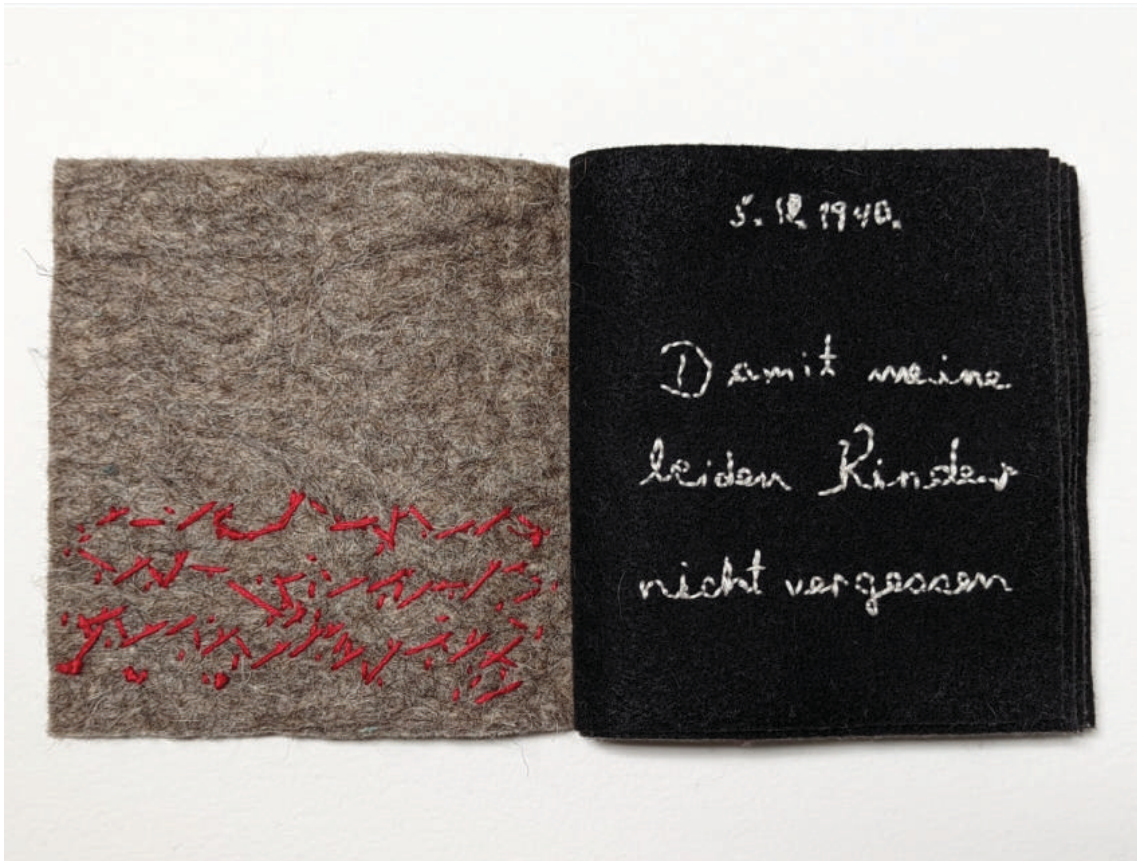 5. 12. 1940.
Damit meine
beiden Kinder
nicht vergessen